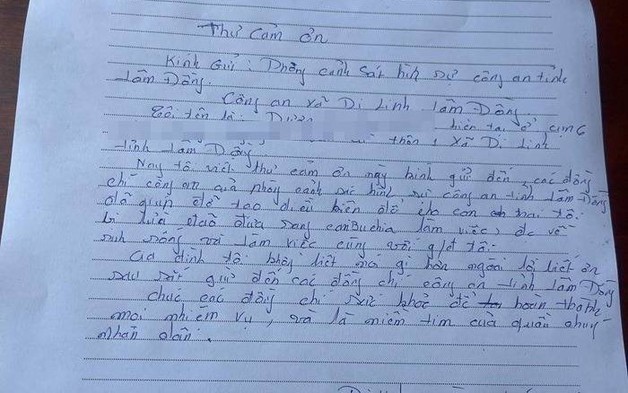 Thư cảm ơn
Kính Gửi: Phòng cảnh sát hình sự công an tỉnh
Lâm Đồng.
Công an xã Di Linh Lâm Đồng
Tôi tên là: hiện tại ở
thôn, xã Di Linh
tỉnh Lâm Đồng
Nay tôi viết thư cảm ơn này kính gửi đến, các đồng
chí công an của phòng cảnh sát hình sự công an tỉnh Lâm Đồng
đã giúp đỡ tạo điều kiện để cho con trai tôi.
bị lừa đảo đưa sang canBuchia làm việc, đc về
sinh sống và làm việc cùng với g/đ tôi.
Gia đình tôi không biết nói gì hơn ngoài lời biết ơn
sâu sắc gửi đến các đồng chí công an tỉnh Lâm Đồng
chúc các đồng chí sức khoẻ để hoàn thành
mọi nhiệm vụ, và là niềm tin của quần chúng
nhân dân.